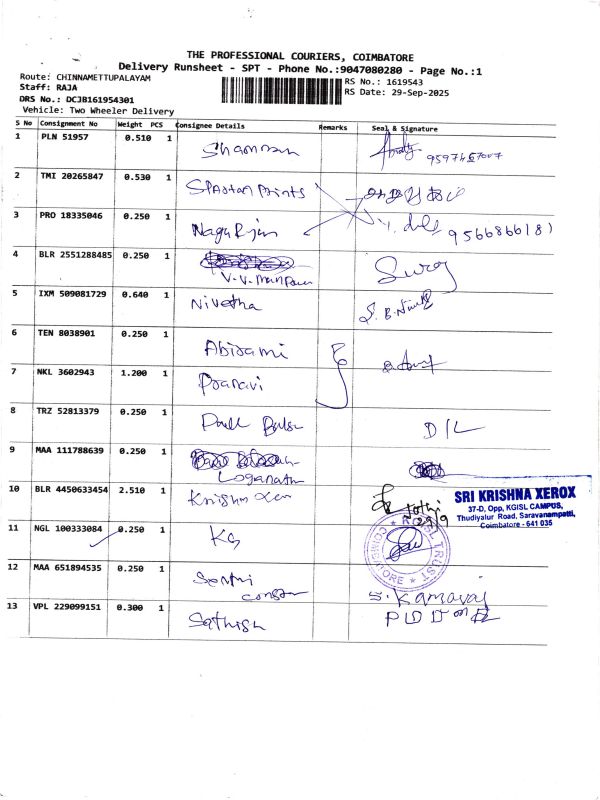 THE PROFESSIONAL COURIERS, COIMBATORE
Delivery Runsheet - SPT - Phone No.:9047080280 - Page No.:1
Route: CHINNAMETTUPALAYAM
Staff: RAJA
DRS No.: DCJB161954301
Vehicle: Two Wheeler Delivery
RS No.: 1619543
RS Date: 29-Sep-2025
S No Consignment No Weight PCS Consignee Details Remarks Seal & Signature
1 PLN 51957 0.510 1
2 TMI 20265847 0.530 1 Spartan Prints
3 PRO 18335046 0.250 1 NagaRajan
4 BLR 2551288485 0.250 1 Suroj
5 IXM 509081729 0.640 1 Nivetha
6 TEN 8038901 0.250 1 Abirami
7 NKL 3602943 1.200 1 Pranavi
8 TRZ 52813379 0.250 1 D/L
9 MAA 111788639 0.250 1 Loganathan
10 BLR 4450633454 2.510 1
SRI KRISHNA XEROX
37-D, Opp, KGISL CAMPUS,
Thudiyalur Road, Saravanampatti,
Coimbatore - 641 035
29/9
11 NGL 100333084 0.250 1 KG
KGISL TRUST
COIMBATORE
12 MAA 651894535 0.250 1 S. Kamaraj
13 VPL 229099151 0.300 1 Sathish